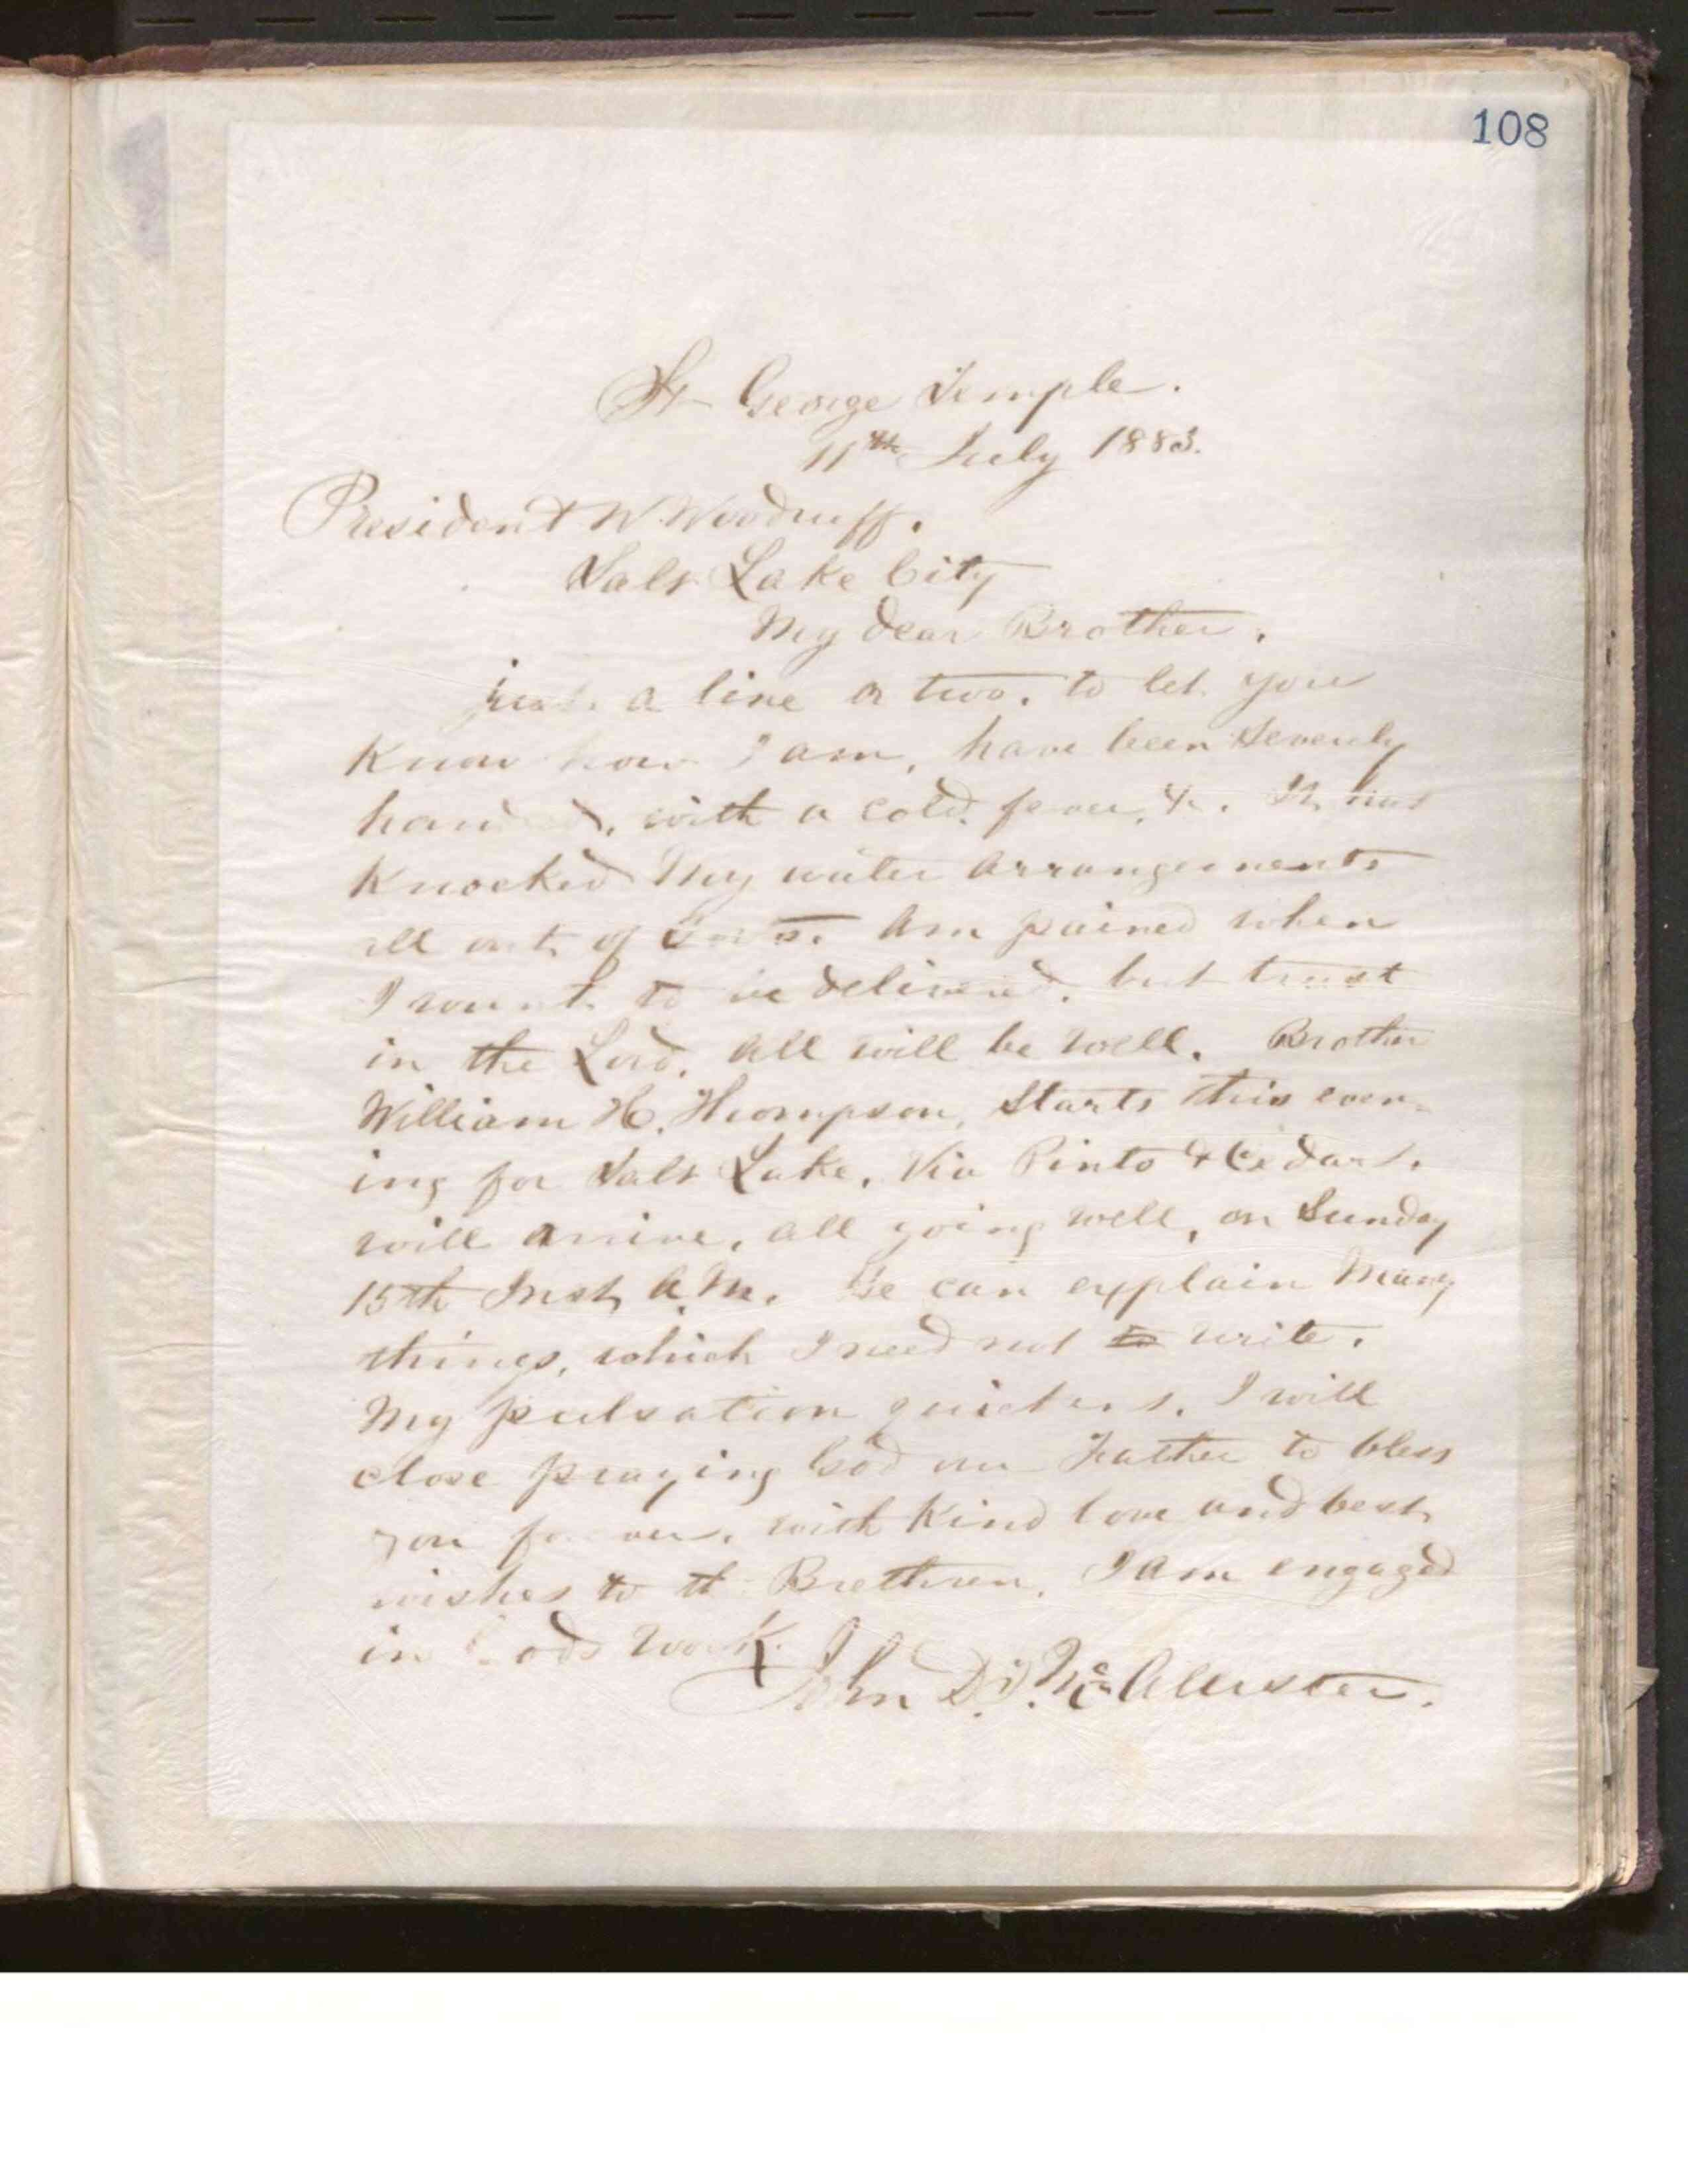 108
St George Temple.
11th July 1883.
President W. Woodruff.
Salt Lake City
My dear Brother.
just a line or two. to let you
Know how I am, have been Severely
handled, with a cold, fever, &c. It has
Knocked My water arrangements
all out of
Am pained when
I want to be delivered, but trust
in the Lord, all will be well. Brother
William H. Thompson, Starts this even-
ing for Salt Lake, Via Pinto & Cedar.
will arrive, all going well, on Sunday
15th Inst, A.M. He can explain Many
things, which I need not to write.
My pulsation quickens, I will
close praying God our Father to bless
you forever, with Kind love and best
wishes to the Brethren, I am engaged
in Gods Work.
John D. T. McAllister.